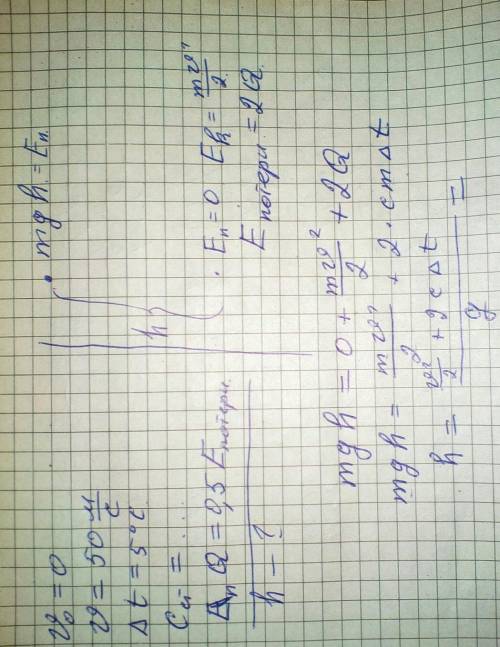 v₀ = 0
v = 50 м/с
Δt = 5°C
Q = 0,5 Eпотери
h – ?
mgh = Eп
h
Eп = 0 Ek = mv²/2
Eпотери = 2Q
mgh = 0 + mv²/2 + 2Q
mgh = mv²/2 + 2·cmΔt
h = (v²/2 + 2cΔt)/g =